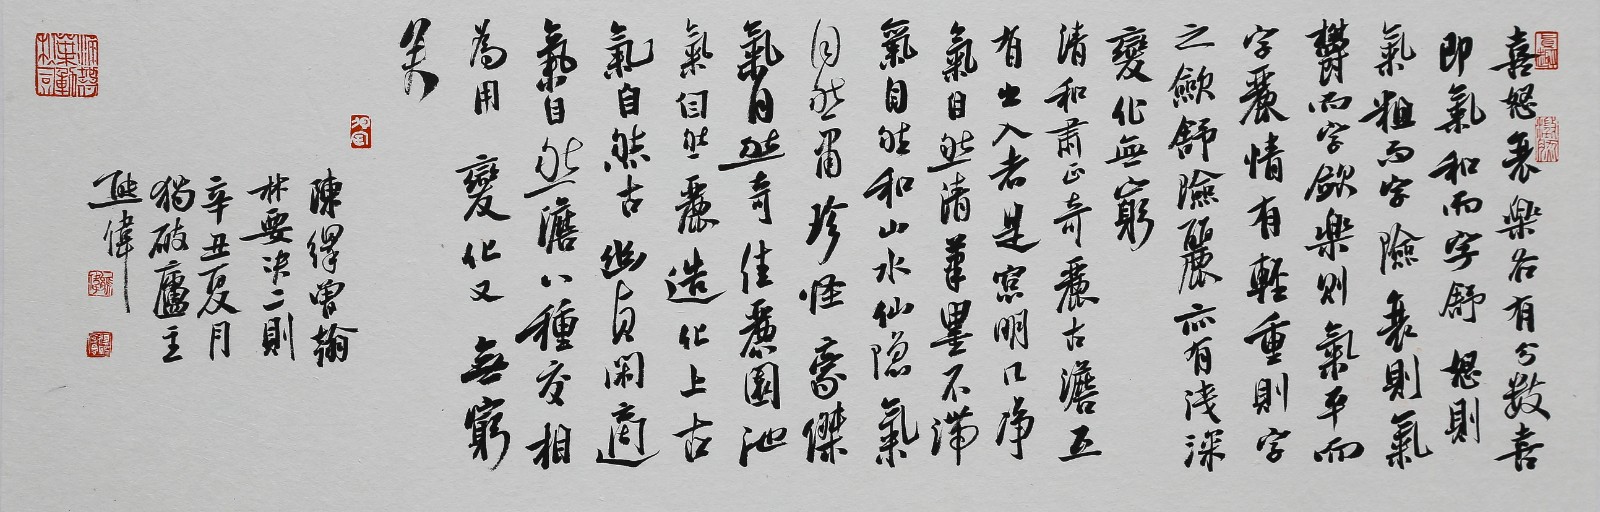 喜怒哀樂各有分數喜
即氣和而字舒怒則
氣粗而字險哀則氣
鬱而字歛樂則氣平而
字麗情有輕重則字
之歛舒險麗亦有浅深
變化無窮
清和肅正奇麗古澹互
有出入者是窓明几净
氣自然清筆墨不滞
氣自然和山水仙隐氣
自然肅珍怪豪傑
氣自然奇佳麗園池
氣自然麗造化上古
氣自然古幽貞閑適
氣自然澹八種交相
為用變化又無窮
矣
陳繹曾翰
林要決二則
辛丑夏月
獨破廬主
偉